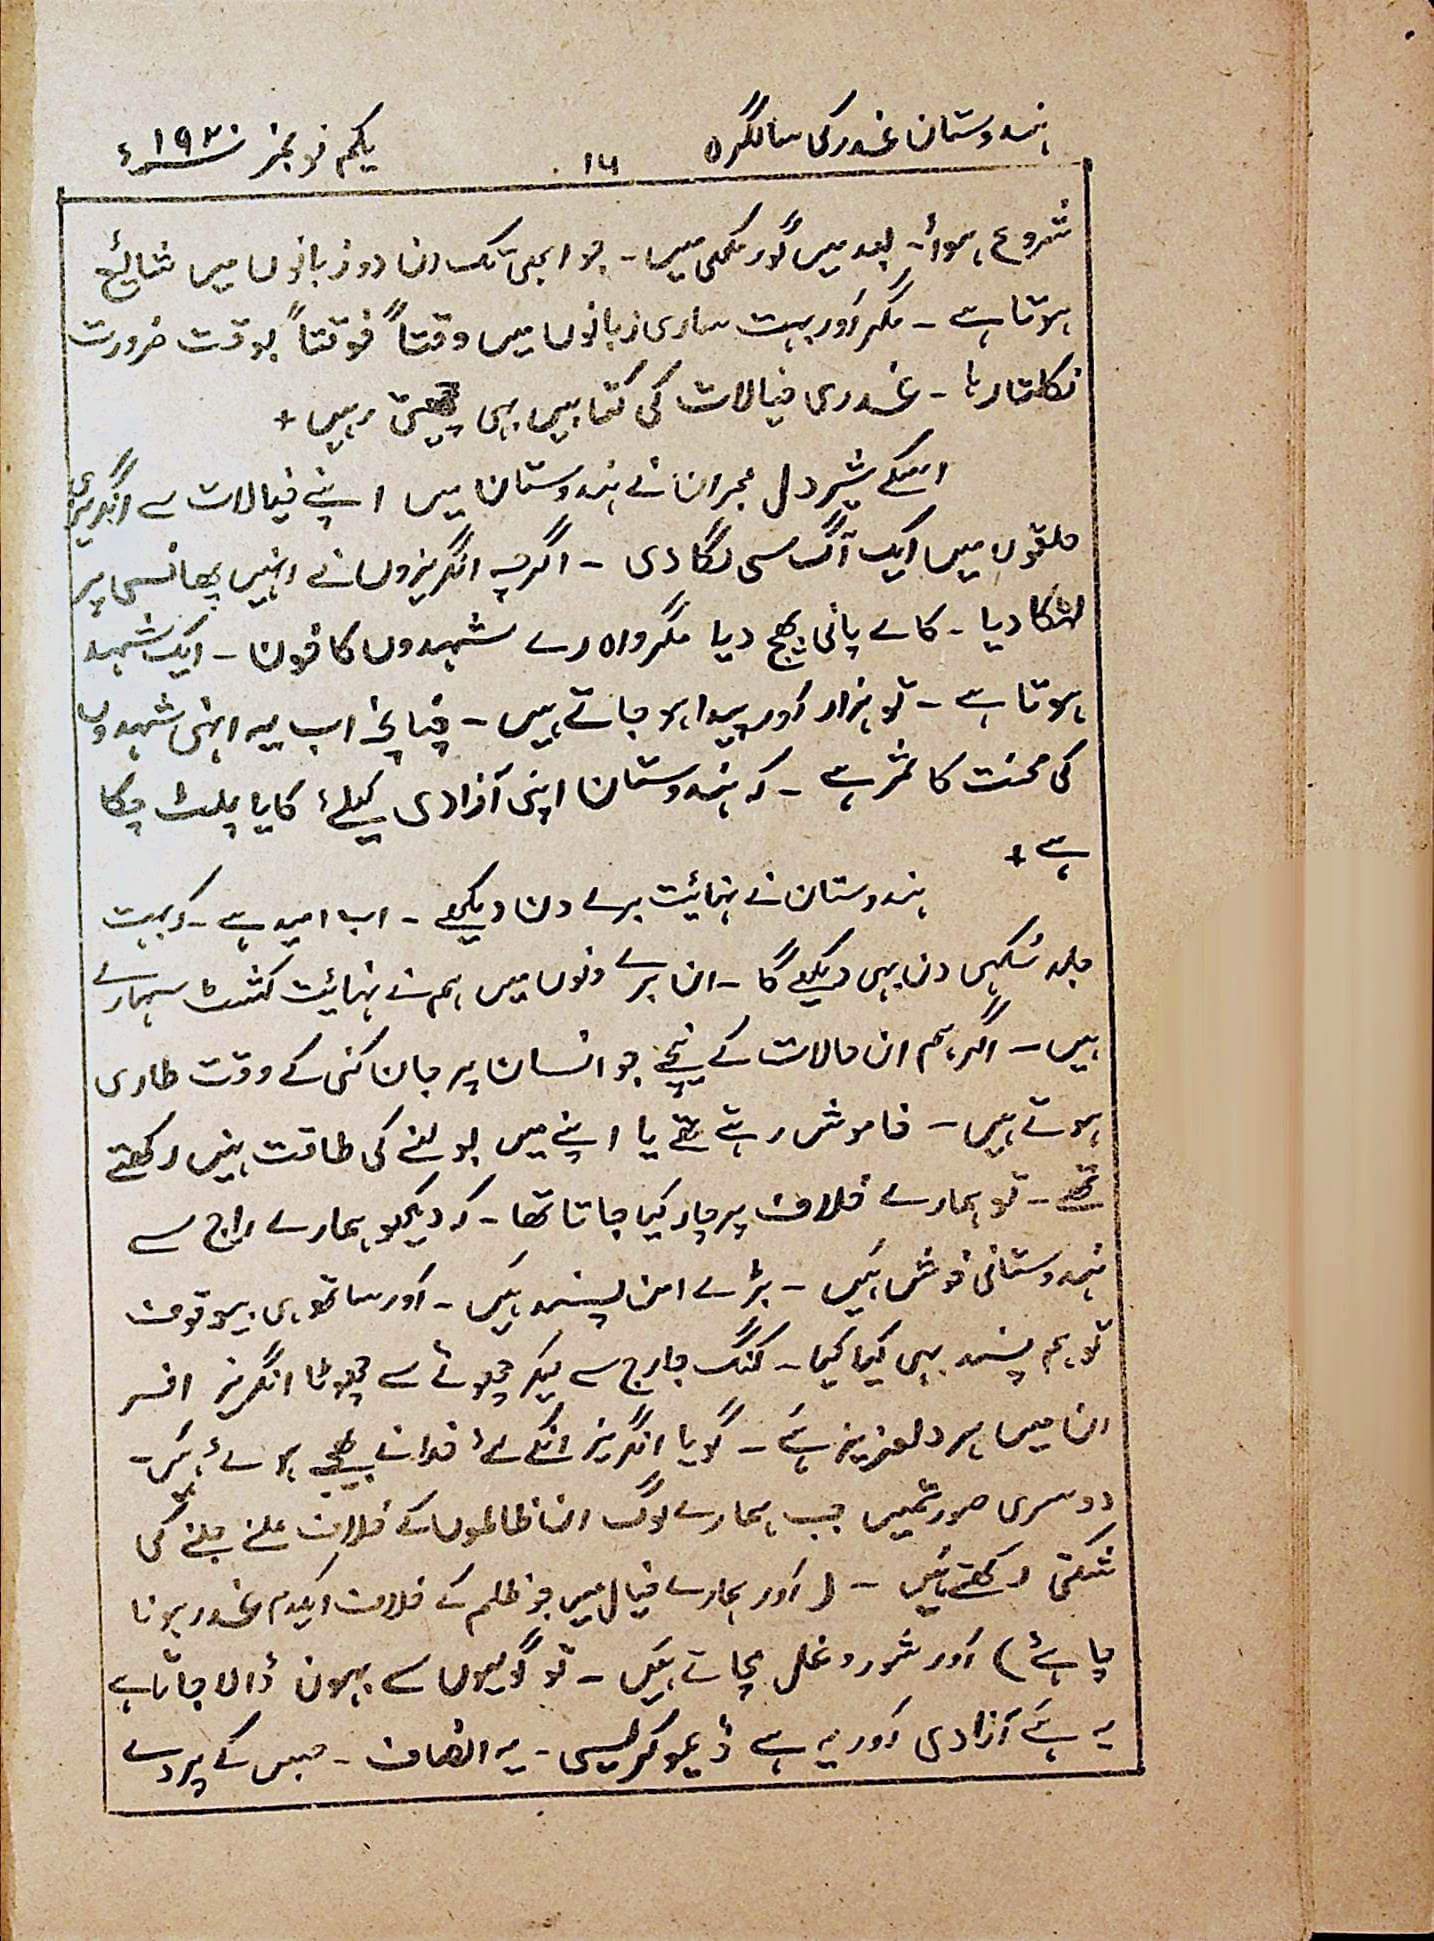 ہندوستان غدر کی سالگرہ ۱۶ یکم نومبر ۱۹۳۰ء
شروع ہوا۔ بعد میں گورمکھی میں۔ جو ابھی تک ان دو زبانوں میں شائع
ہوتا ہے۔ مگر اور بہت ساری زبانوں میں وقتاً فوقتاً بوقت ضرورت
نکلتا رہا۔ غدری خیالات کی کتابیں بہی چھپتی رہیں +
اسکے شیر دل ممبران نے ہندوستان میں اپنے خیالات سے انگریزی
حلقوں میں ایک آگ سی لگا دی۔ اگرچہ انگریزوں نے انہیں پھانسی پر
لٹکا دیا۔ کالے پانی بھیج دیا مگر واہ رے شہیدوں کا خون۔ ایک شہید
ہوتا ہے۔ تو ہزار اور پیدا ہو جاتے ہیں۔ چنانچہ اب یہ انہی شہیدوں
کی محنت کا ثمر ہے۔ کہ ہندوستان اپنی آزادی کیلئے کایا پلٹ چکا
ہے +
ہندوستان نے نہائیت برے دن دیکھے۔ اب امید ہے۔ کہ بہت
جلد سُکہی دن بہی دیکھے گا۔ ان برے دنوں میں ہم نے نہائیت کشٹ سہارے
ہیں۔ اگر ہم ان حالات کے نیچے جو انسان پر جان کنی کے وقت طاری
ہوتے ہیں۔ خاموش رہتے تھے یا اپنے میں بولنے کی طاقت نہیں رکھتے
تھے۔ تو ہمارے خلاف پرچار کیا جاتا تھا۔ کہ دیکھو ہمارے راج سے
ہندوستانی خوش ہیں۔ بڑے امن پسند ہیں۔ اور ساتھ ہی بیوقوف
تو ہم پسند بہی کیا کیا۔ کنگ جارج سے لیکر چھوٹے سے چھوٹا انگریز افسر
ان میں ہر دلعزیز ہے۔ گویا انگریز انکے لئے خدا نے بھیجے ہوئے ہیں۔
دوسری صورتمیں جب ہمارے لوگ ان ظالموں کے خلاف ہلنے جلنے کی
شکتی رکھتے ہیں۔ (اور ہمارے خیال میں جو ظلم کے خلاف ایکدم غدر ہونا
چاہئے) اور شور و غل مچاتے ہیں۔ تو گولیوں سے بہون ڈالا جاتا ہے
یہ ہے آزادی اور یہ ہے ڈیموکریسی۔ یہ انصاف۔ جس کے پردے